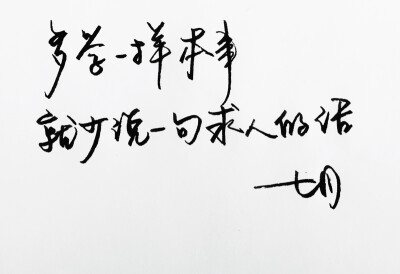 多学一样本事
就少说一句求人的话
一七月